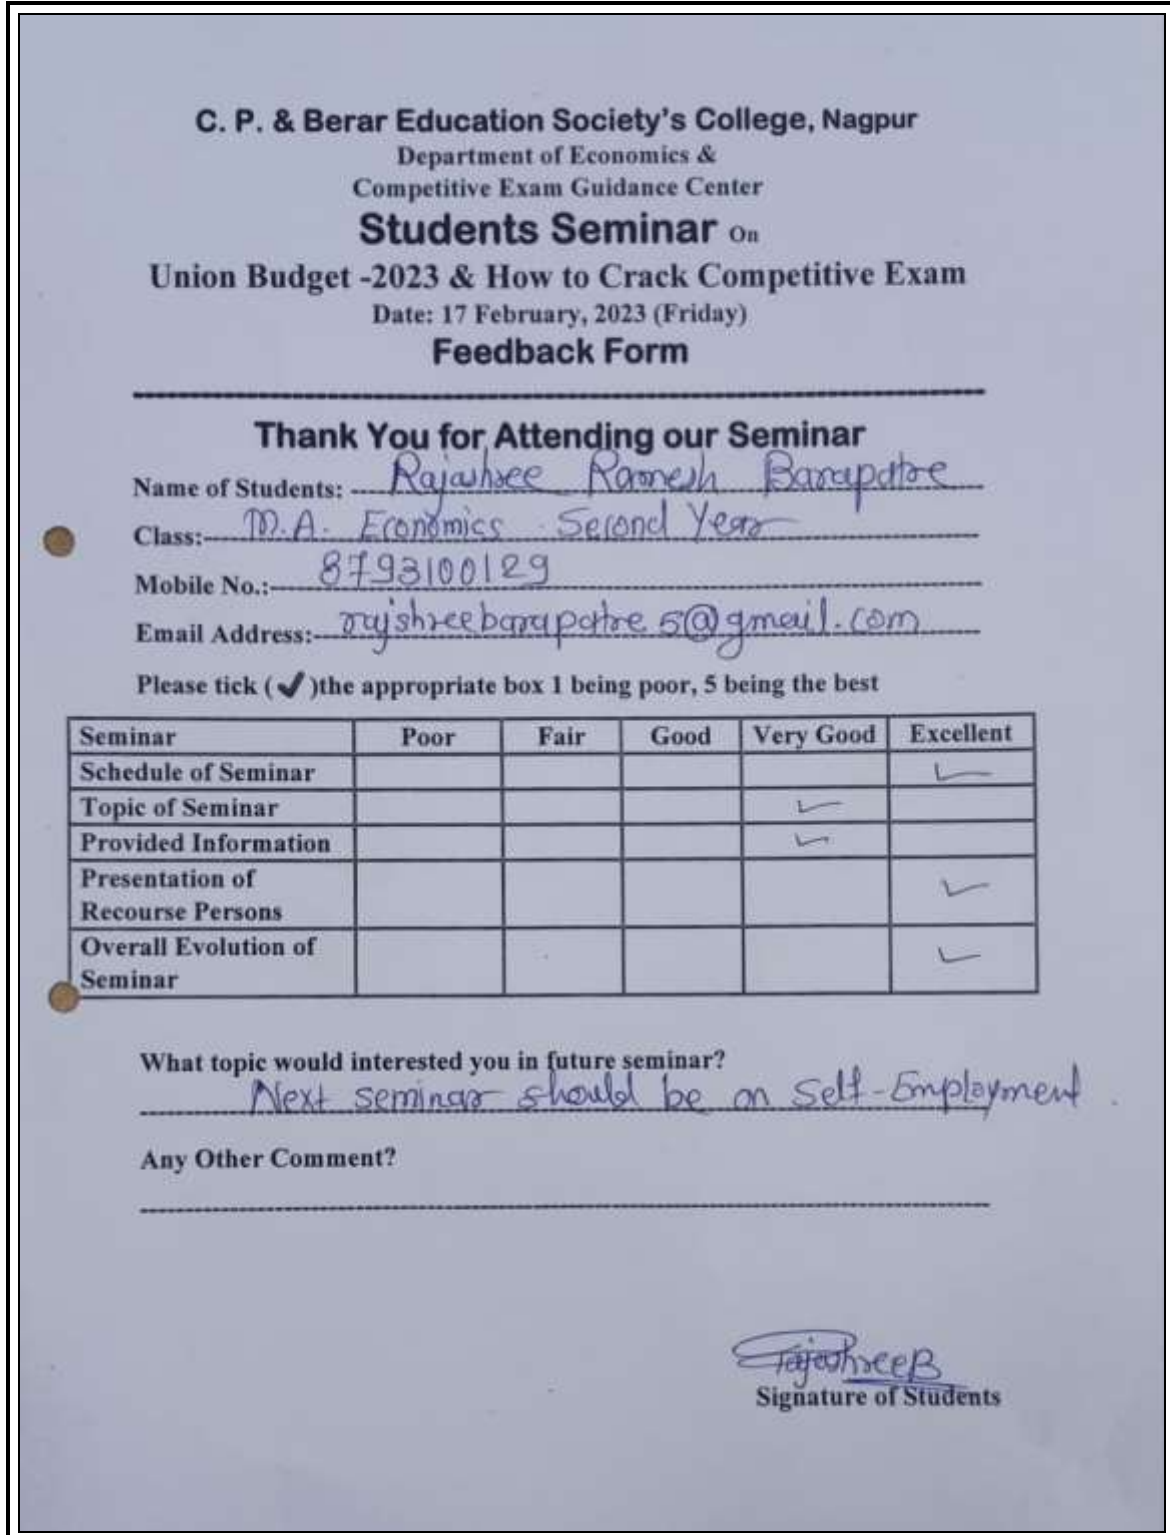 C. P. & Berar Education Society's College, Nagpur
Department of Economics &
Competitive Exam Guidance Center
Students Seminar On
Union Budget -2023 & How to Crack Competitive Exam
Date: 17 February, 2023 (Friday)
Feedback Form
Thank You for Attending our Seminar
Name of Students: Rajashree Ramesh Barapatre
Class:- M.A. Economics Second Year
Mobile No.:- 8793100129
Email Address:- rajshreebarapatre5@gmail.com
Please tick (✔)the appropriate box 1 being poor, 5 being the best
Seminar Poor Fair Good Very Good Excellent
Schedule of Seminar ✓
Topic of Seminar ✓
Provided Information ✓
Presentation of
Recourse Persons ✓
Overall Evolution of
Seminar ✓
What topic would interested you in future seminar?
Next seminar should be on Self-Employment.
Any Other Comment?
RajashreeB
Signature of Students